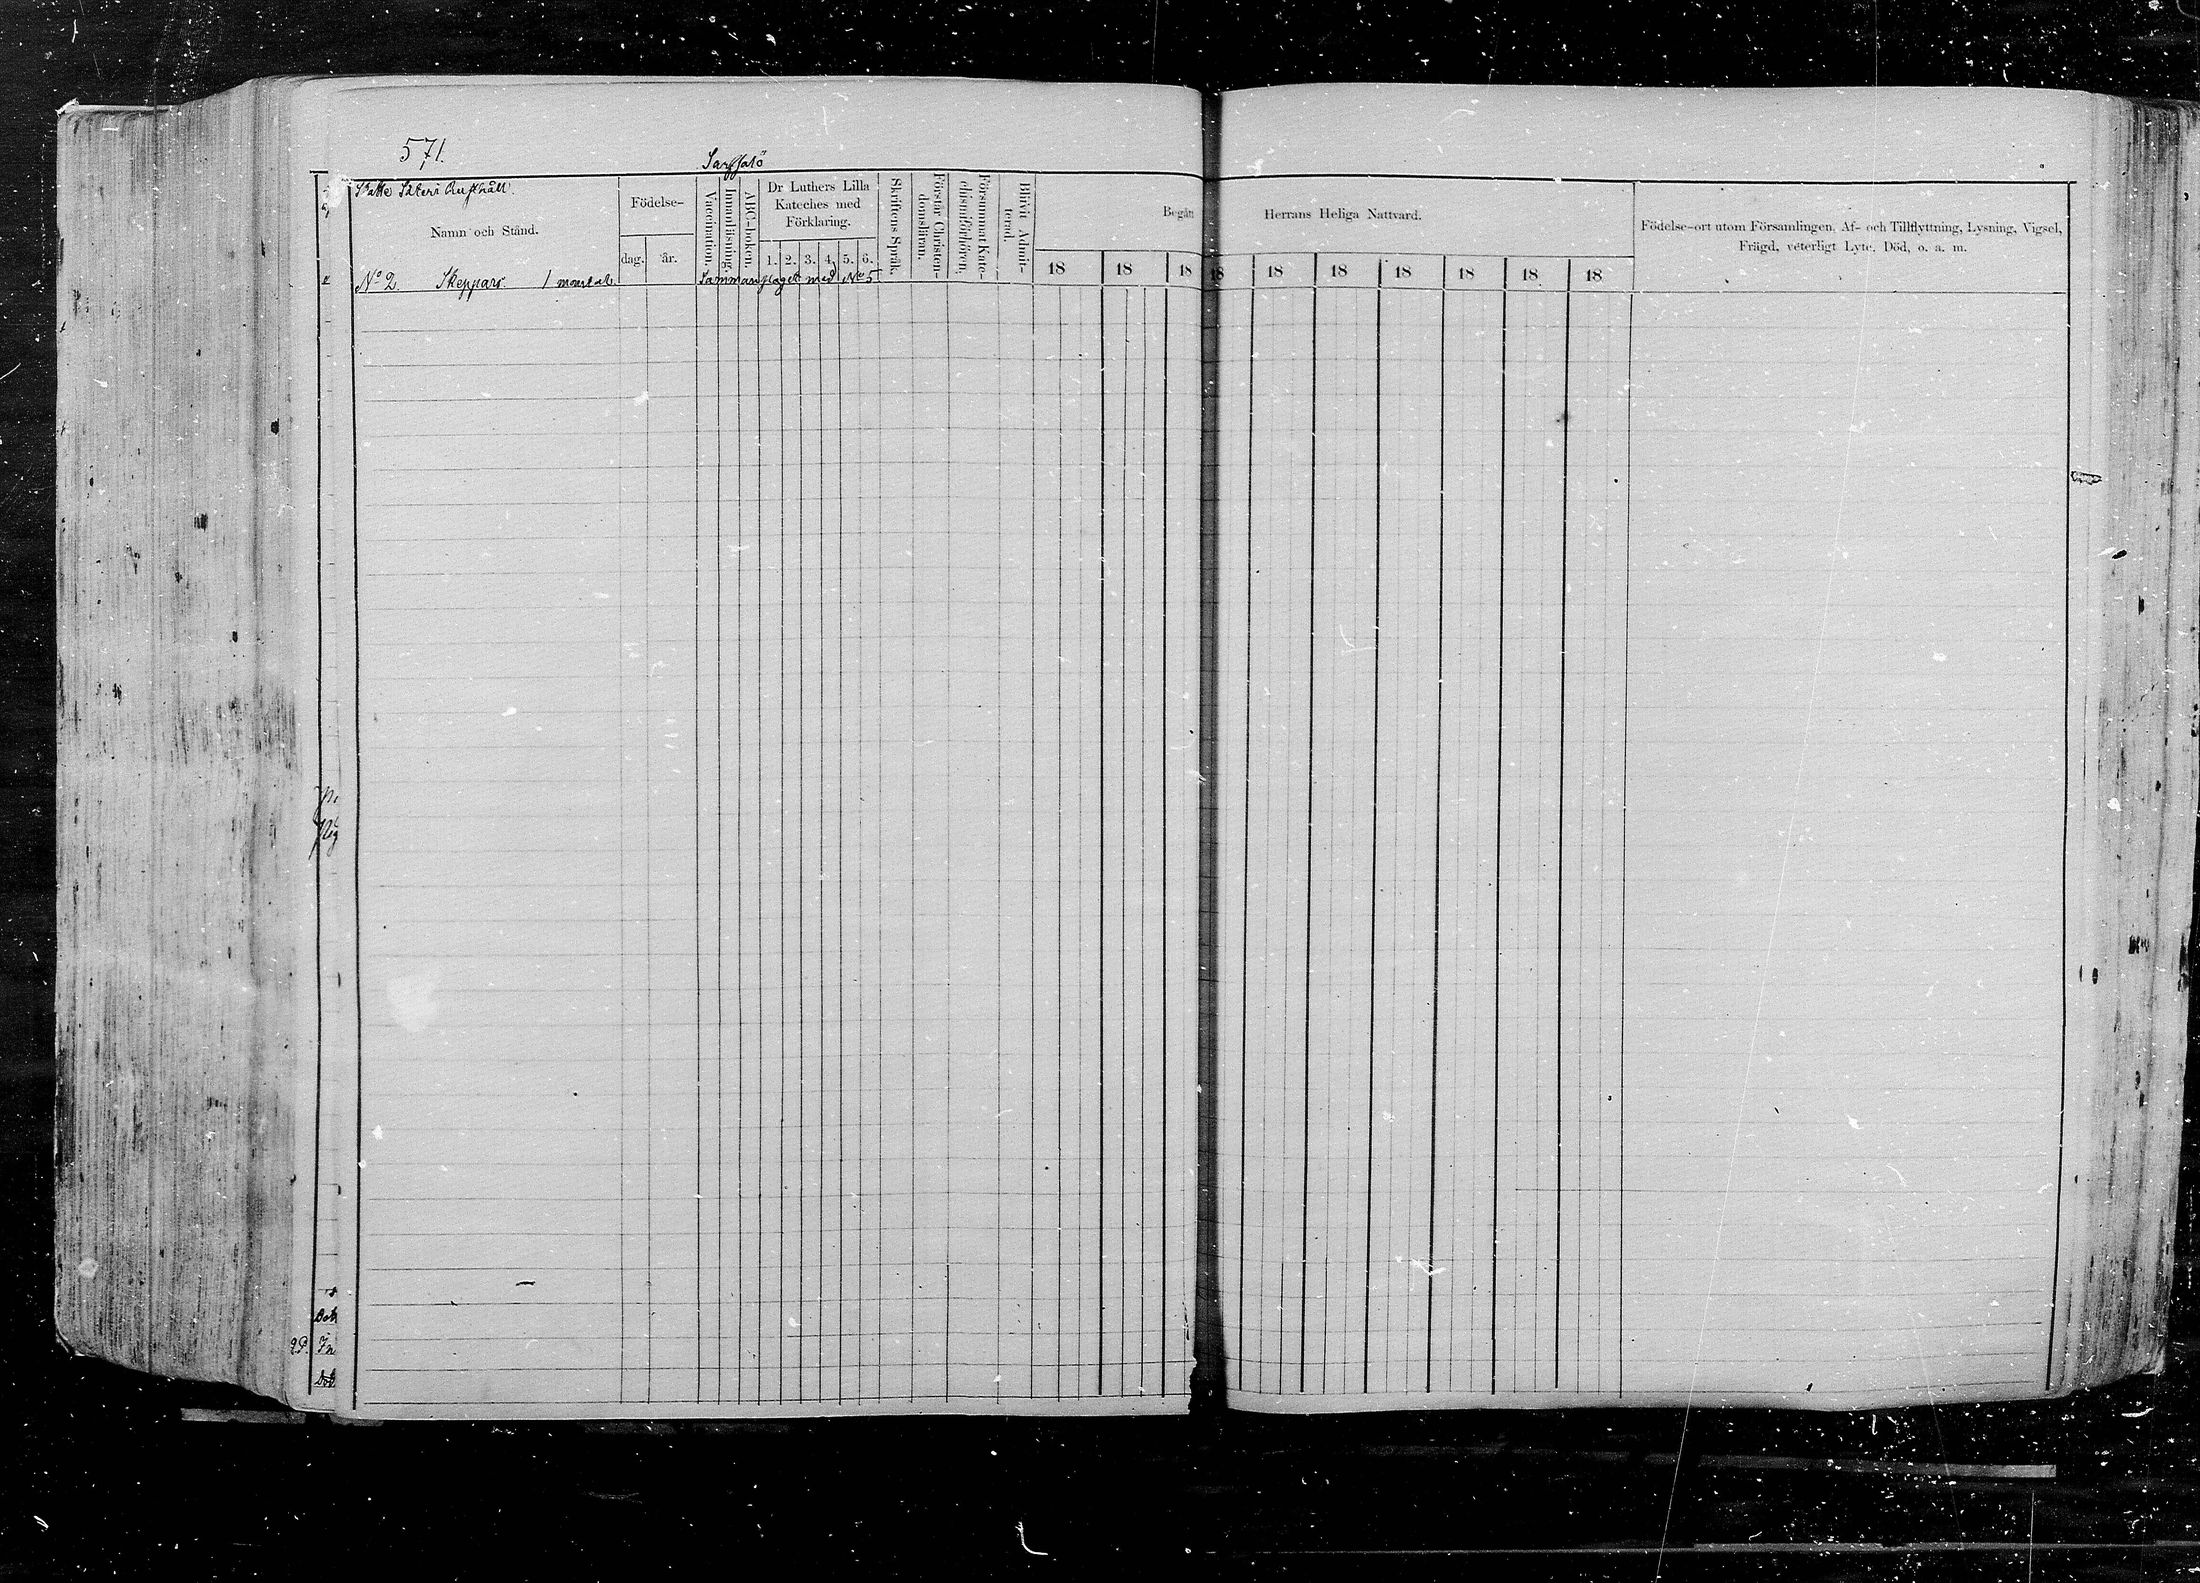 571.
Sarfsalö
Skatte Säteri Rusthåll.
Namn och Stånd.
Födelse-
dag.
år.
Vaccination.
Innanläsning.
ABC-boken.
Dr Luthers Lilla
Kateches med
Förklaring.
1. 2. 3. 4. 5. 6.
Skriftens Språk.
Förstår Christen-
domsläran.
Försummat Kate-
chismiförhören.
Blifvit Admit-
terad.
Begått Herrans Heliga Nattvard.
18 18 18 18 18 18 18 18 18 18
Födelse-ort utom Församlingen, Af- och Tillflyttning, Lysning, Vigsel,
Frägd, veterligt Lyte, Död, o. a. m.
No 2. Skeppars. 1 mantal. Sammanslaget med No 5